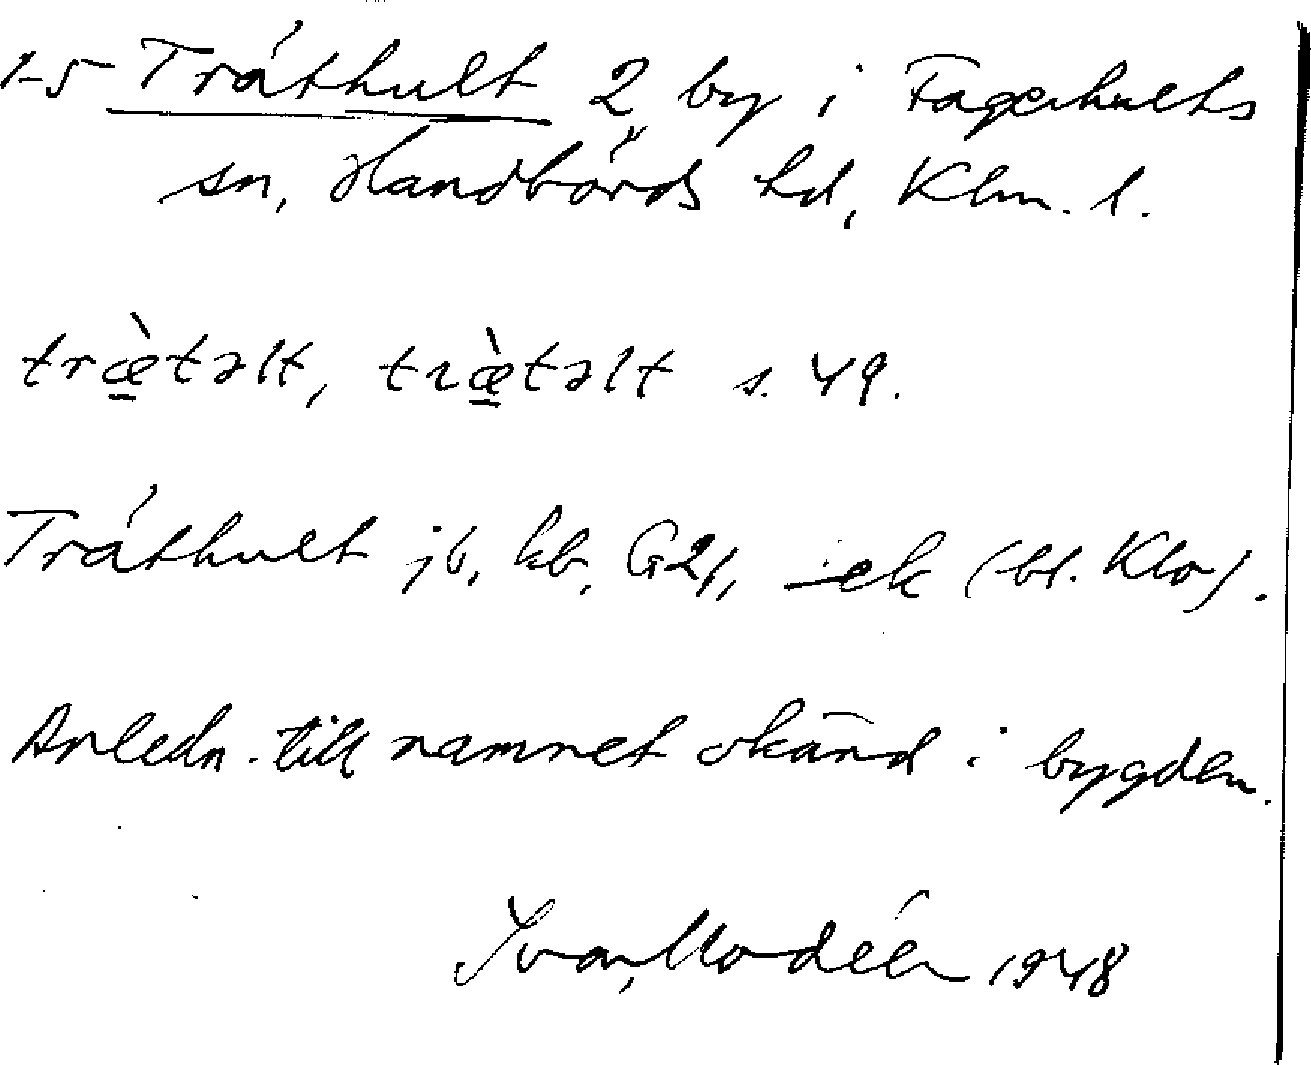 1-5 Tråthult 2 by i Fagerhults
sn, Handbörds hd, Klm. l.
træ̀təlt, træ̀təlt s. 49.
Tråthult jb, kb, G21, ek (bl. Klo).
Anledn. till namnet okänd i bygden.
Ivar Modéer 1948